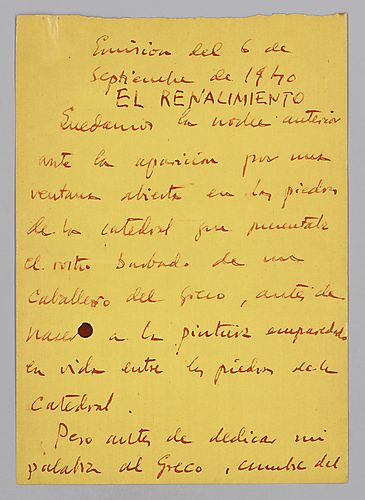 Emision del 6 de
septiembre de 1940
EL RENALIMIENTO
Quedamos la noche anterior
ante la aparicion por una
ventana abierta en las piedras
de la catedral que presentaba
el rostro barbado de un
caballero del Greco, antes de
nacer a la pintura emparedado
en vida entre las piedras de la
catedral.
Pero antes de dedicar mi
palabra al Greco, cumbre del